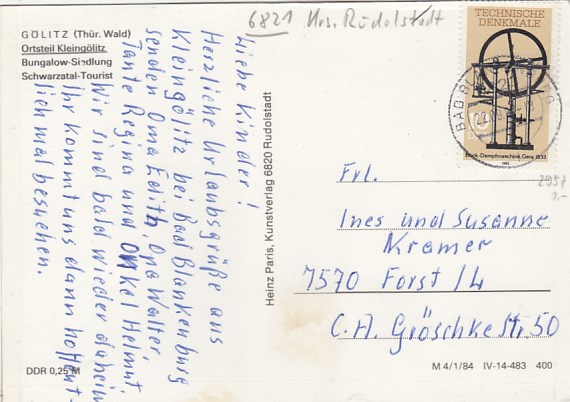 6821 Krs. Rudolstadt
GÖLITZ (Thür. Wald)
Ortsteil Kleingölitz
Bungalow-Siedlung
Schwarzatal-Tourist
Liebe Kinder!
Herzliche Urlaubsgrüße aus
Kleingölitz bei Bad Blankenburg
senden Oma Edith, Opa Walter,
Tante Regina und Onkel Helmut.
Wir sind bald wieder daheim
Ihr kommt uns dann hoffent-
lich mal besuchen.
DDR 0,25 M
Heinz Paris, Kunstverlag 6820 Rudolstadt
TECHNISCHE
DENKMALE
10
DDR
Bock-Dampfmaschine, Gera 1833
1985
BAD BL
G
2957
1.-
Frl.
Ines und Susanne
Kramer
7570 Forst/L
C.A. Gröschke Str. 50
M 4/1/84 IV-14-483 400